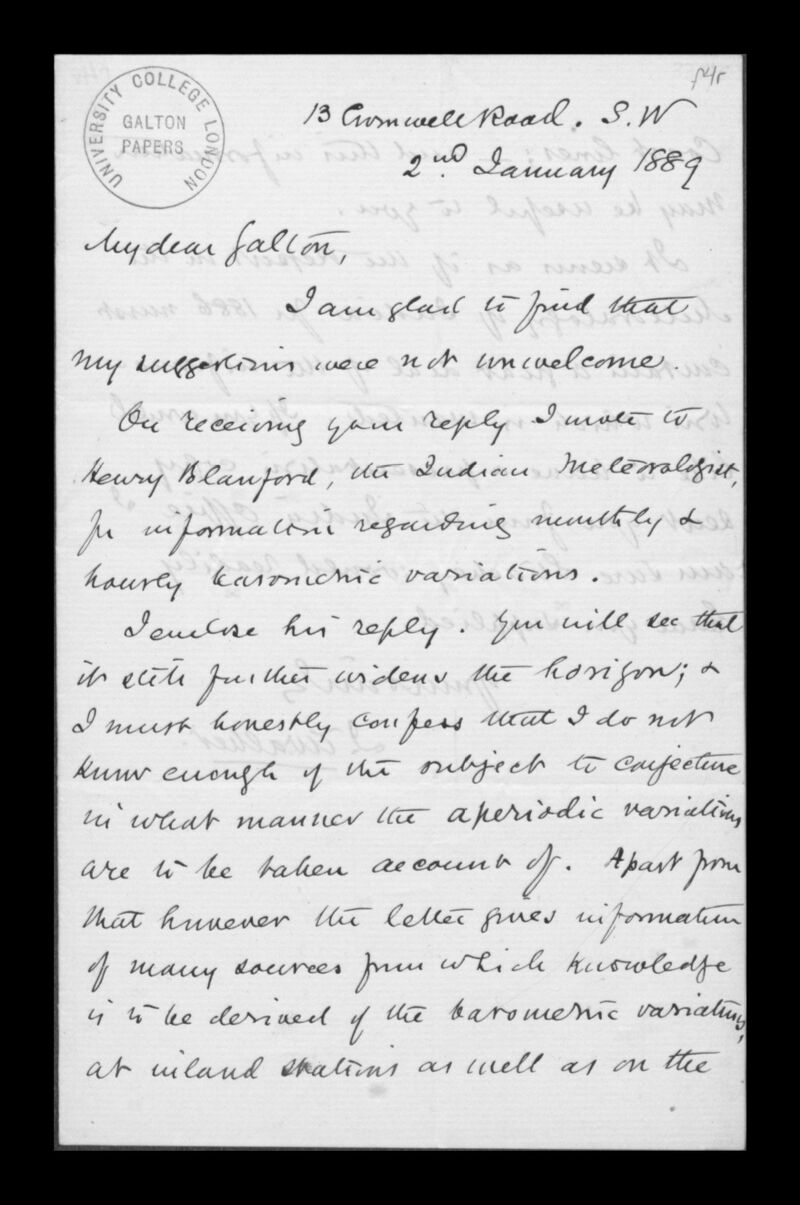 UNIVERSITY COLLEGE LONDON
GALTON
PAPERS
f4r
13 Cromwell Road. S.W
2nd. January 1889
My dear Galton,
I am glad to find that
my suggestions were not unwelcome.
On receiving your reply I wrote to
Henry Blanford, the Indian Meteorologist,
for information regarding monthly &
hourly barometric variations.
I enclose his reply. You will see that
it still further widens the horizon; &
I must honestly confess that I do not
know enough of the subject to conjecture
in what manner the aperiodic variations
are to be taken account of. Apart from
that however the letter gives information
of many sources from which knowledge
is to be derived of the barometric variations,
at inland stations as well as on the